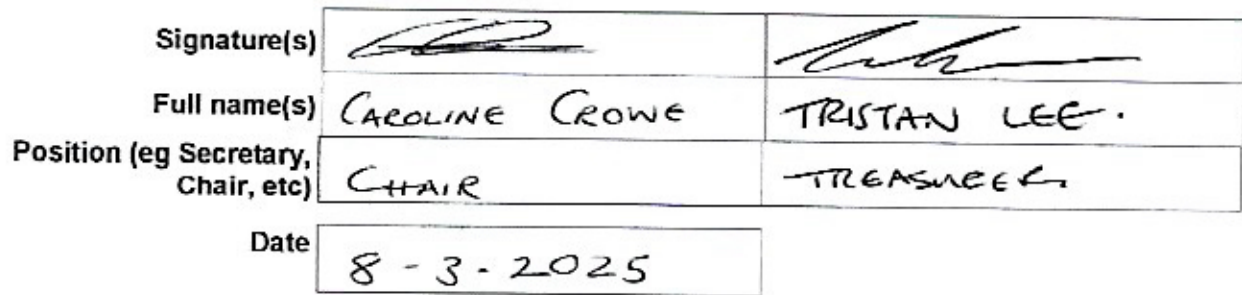 Signature(s)
Full name(s) CAROLINE CROWE TRISTAN LEE.
Position (eg Secretary,
Chair, etc) CHAIR TREASURER
Date 8-3-2025